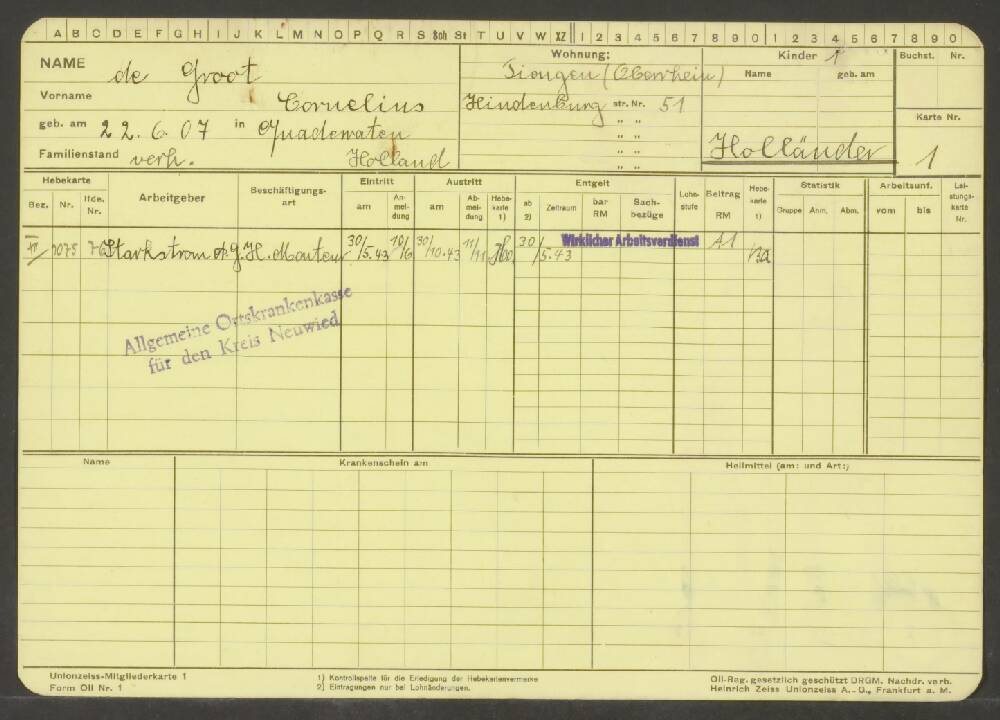 A B C D E F G H I J K L M N O P Q R S Sch St T U V W XZ 1 2 3 4 5 6 7 8 9 0 1 2 3 4 5 6 7 8 9 0
NAME de Groot
Vorname Cornelius
geb. am 22.6.07 in
Familienstand verh. Holland
Wohnung:
Tiengen (Oberrhein)
Hindenburg str. Nr. 51
" "
" "
" "
" "
Kinder 1
Name geb. am
Holländer
Buchst. Nr.
Karte Nr.
1
Hebekarte Arbeitgeber Beschäftigungsart Eintritt Austritt Entgelt Lohnstufe Beitrag RM Hebekarte 1) Statistik Arbeitsunf. Leistungskarte Nr.
Bez. Nr. lfde. Nr. am Anmeldung am Abmeldung Hebekarte 1) ab 2) Zeitraum bar RM Sachbezüge Gruppe Anm. Abm. vom bis
III 1075 76 Starkstrom A.G. H. Monteur 30/5.43 10/6 30/10.43 11/11 30/5.43 Wirklicher Arbeitsverdienst A1
Allgemeine Ortskrankenkasse
für den Kreis Neuwied
Name Krankenschein am Heilmittel (am: und Art:)
Unionzeiss-Mitgliederkarte 1
Form Oll Nr. 1
1) Kontrollspalte für die Erledigung der Hebekartenvermerke
2) Eintragungen nur bei Lohnänderungen.
Oll-Reg. gesetzlich geschützt DRGM. Nachdr. verb.
Heinrich Zeiss Unionzeiss A.-G., Frankfurt a. M.